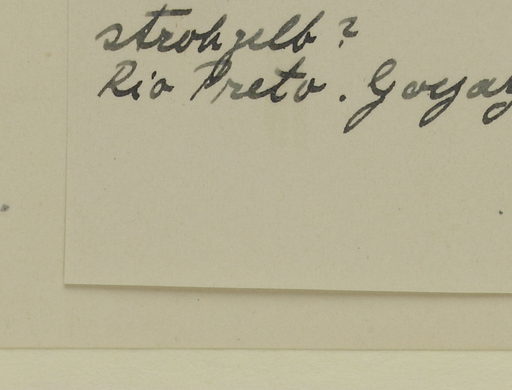 strohgelb?
Rio Preto. Goyaz